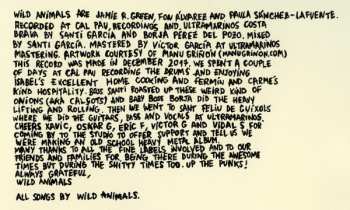 WILD ANIMALS ARE JAMIE R. GREEN, FON ÁLVAREZ AND PAULA SÁNCHEZ-LAFUENTE.
RECORDED AT CAL PAU RECORDINGS AND ULTRAMARINOS COSTA
BRAVA BY SANTI GARCÍA AND BORJA PÉREZ DEL POZO. MIXED
BY SANTI GARCÍA. MASTERED BY VÍCTOR GARCÍA AT ULTRAMARINOS
MASTERING. ARTWORK COURTESY OF MANU GRIÑÓN (MANUGRINON.COM)
THIS RECORD WAS MADE IN DECEMBER 2017. WE SPENT A COUPLE
OF DAYS AT CAL PAU RECORDING THE DRUMS AND ENJOYING
ISABEL'S EXCELLENT HOME COOKING AND FERMÍN AND CARME'S
KIND HOSPITALITY. BOSS SANTI ROASTED UP THESE WEIRD KIND OF
ONIONS (AKA CALSOTS) AND BABY BOSS BORJA DID THE HEAVY
LIFTING AND ROLLING. THEN WE WENT TO SANT FELIU DE GUÍXOLS
WHERE WE DID THE GUITARS, BASS AND VOCALS AT ULTRAMARINOS.
CHEERS XAVIC, OSKAR G, ERIC F, VICTOR G AND VIDAL S FOR
COMING BY TO THE STUDIO TO OFFER SUPPORT AND TELL US WE
WERE MAKING AN OLD SCHOOL HEAVY METAL ALBUM.
MANY THANKS TO ALL THE FINE LABELS INVOLVED AND TO OUR
FRIENDS AND FAMILIES FOR BEING THERE DURING THE AWESOME
TIMES BUT DURING THE SHITTY TIMES TOO. UP THE PUNKS!
ALWAYS GRATEFUL,
WILD ANIMALS
ALL SONGS BY WILD ANIMALS.